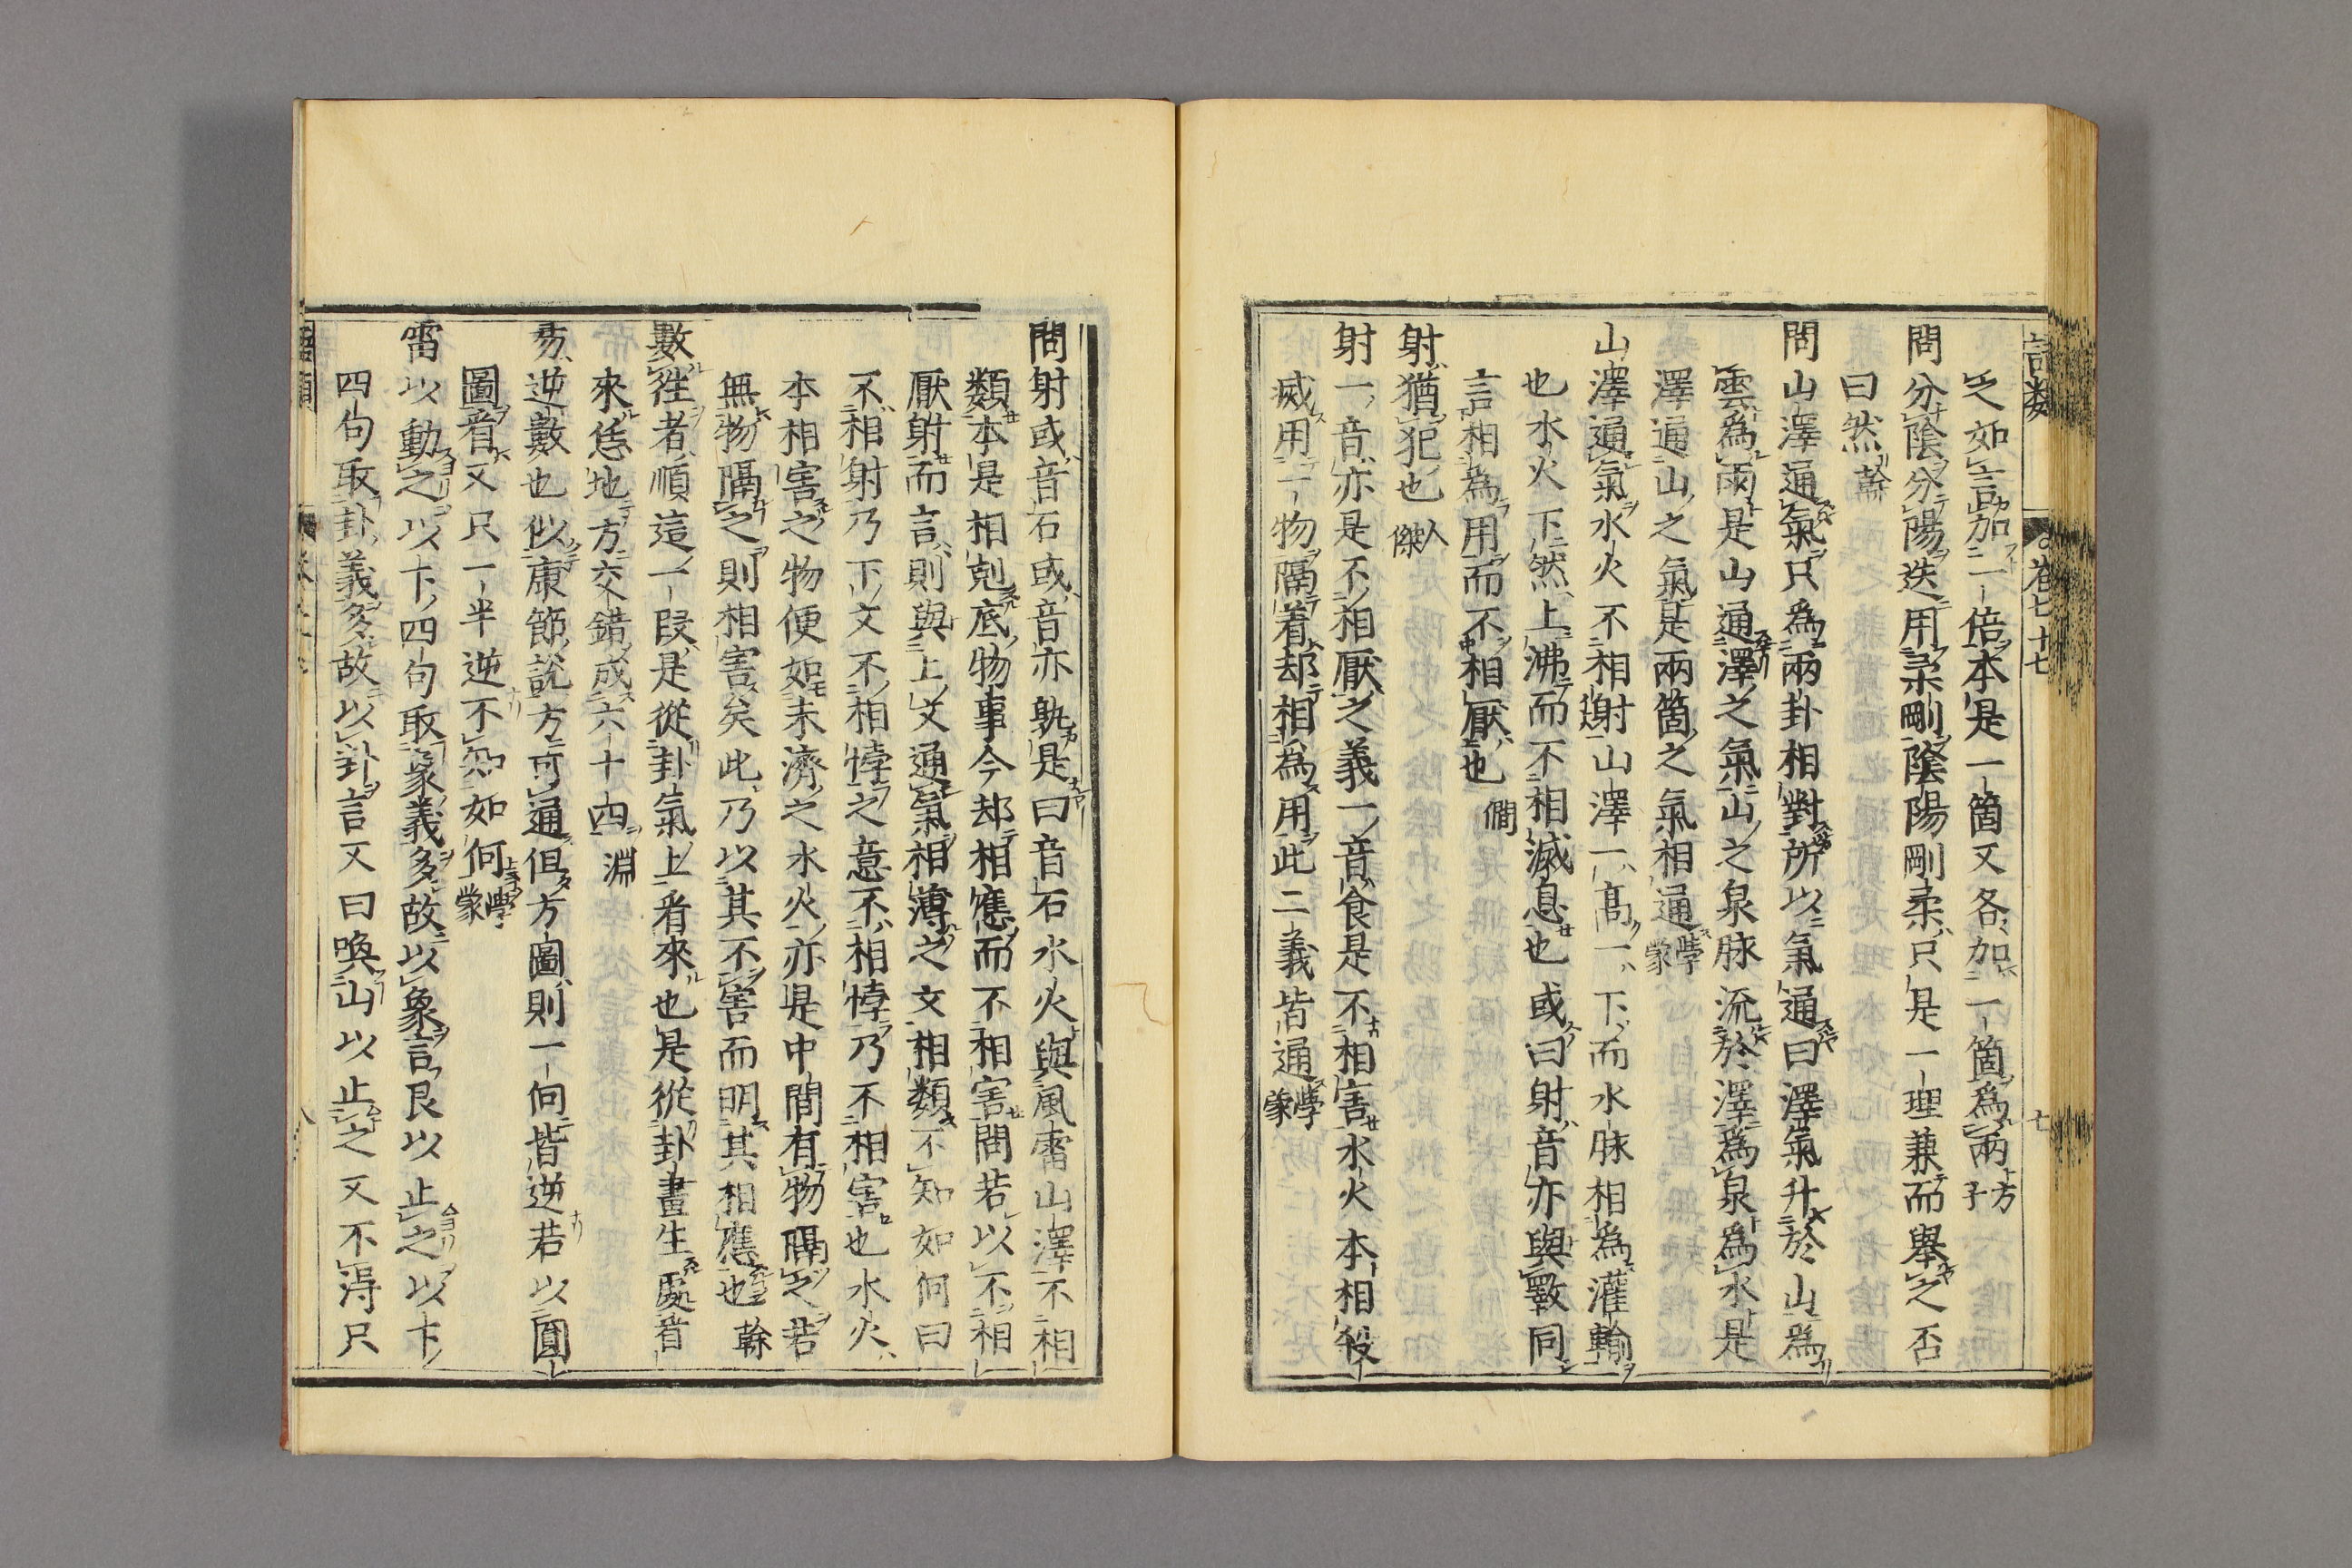 之如言加一倍本是一箇又各加一箇爲兩方子
問分陰分陽迭用柔剛陰陽剛柔只是一理兼而舉之否
曰然㽦
問山澤通氣只爲兩卦相對所以氣通曰澤氣升於山爲
雲爲雨是山通澤之氣山之泉脉流於澤爲泉爲水是
澤通山之氣是兩箇之氣相通學蒙
山澤通氣水火不相射山澤一高一下而水脉相爲灌輸
也水火下然上沸而不相滅息也或曰射音亦與斁同
言相爲用而不相厭也僩
射猶犯也人傑
射一音亦是不相厭之義一音食是不相害水火本相殺
滅用一物隔着却相爲用此二義皆通學蒙
問射或音石或音亦孰是曰音石水火與風雷山澤不相
類本是相剋底物事今却相應而不相害問若以不相
厭射而言則與上文通氣相薄之文相類不知如何曰
不相射乃下文不相悖之意不相悖乃不相害也水火
本相害之物便如未濟之水火亦是中間有物隔之若
無物隔之則相害矣此乃以其不害而明其相應也榦
數徃者順這一段是從卦氣上看來也是從卦畫生處看
來恁地方交錯成六十四淵
易逆數也似康節說方可通但方圖則一向皆逆若以圓
圖看又只一半逆不知如何學蒙
雷以動之以下四句取象義多故以象言艮以止之以下
四句取卦義多故以卦言又曰喚山以止之又不得只
語類
卷七十七
七
八